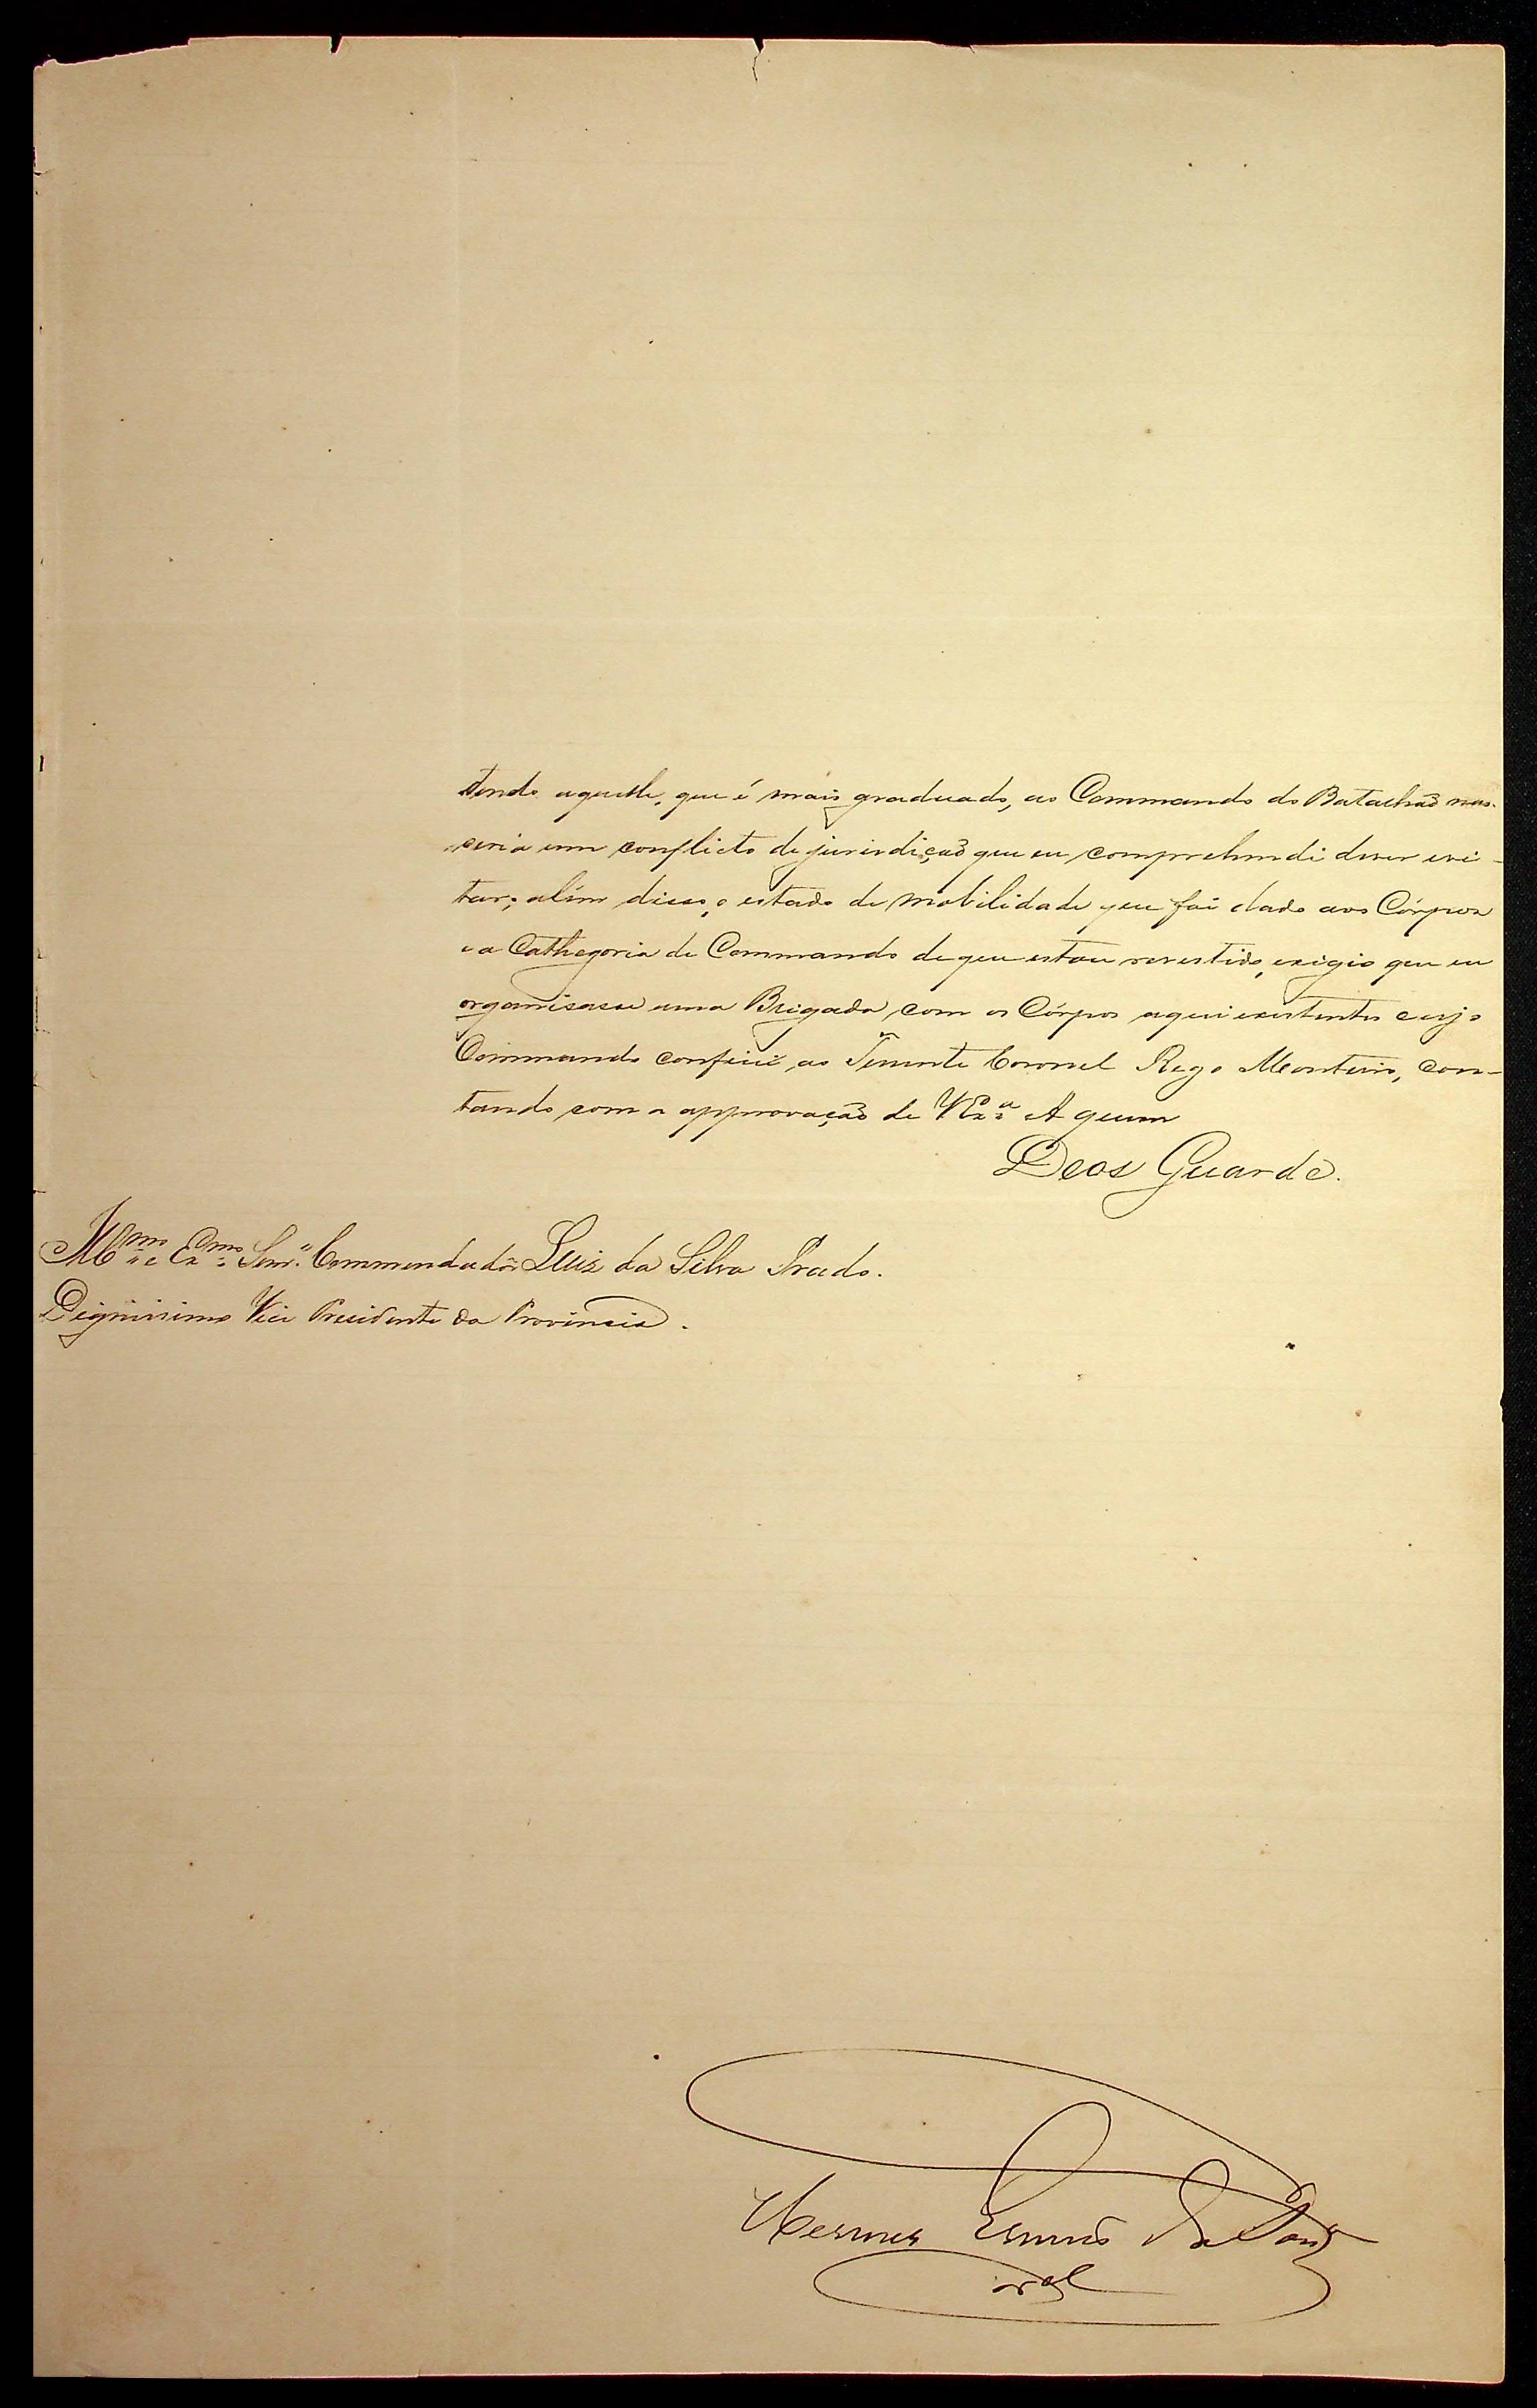 tendo aquelle, que é mais graduado, ao Commando do Batalhaõ nas-
ceria um conflicto de jurisdiçaõ que eu comprehendi dever evi-
tar; além disso, o estado de mobilidade que foi dado aos Córpos
e a Cathegoria de Commando de que estou revestido, exigio que eu
organisasse uma Brigada com os Córpos aqui existentes cujo
Commando confiei ao Tenente Coronel Rego Monteiro, con-
tando com a approvaçaõ de VEx.ª A quem
Deos Guarde.
Ill.mo e Ex.mo Senr. Commendador Luiz da Silva Prado.
Dignissimo Vice Presidente da Provincia.
Hermes Ernesto da Fonsᶜᵃ